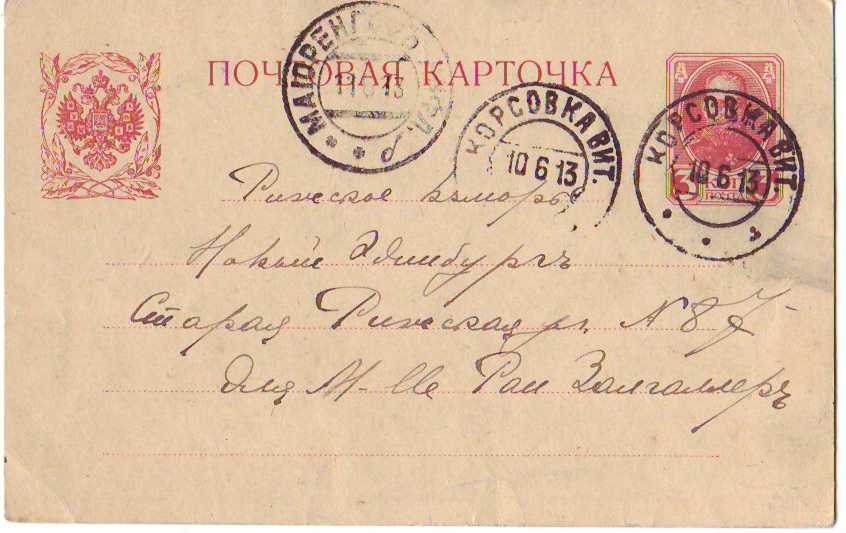 ПОЧТОВАЯ КАРТОЧКА
МАІОРЕНГОФЪ
11 6 13
КОРСОВКА ВИТ.
10 6 13
КОРСОВКА ВИТ.
10 6 13
3
Рижское взморье
Новый Эдинбургъ
Старая Рижская ул. N 87
Для M-lle Раи Залгаллеръ